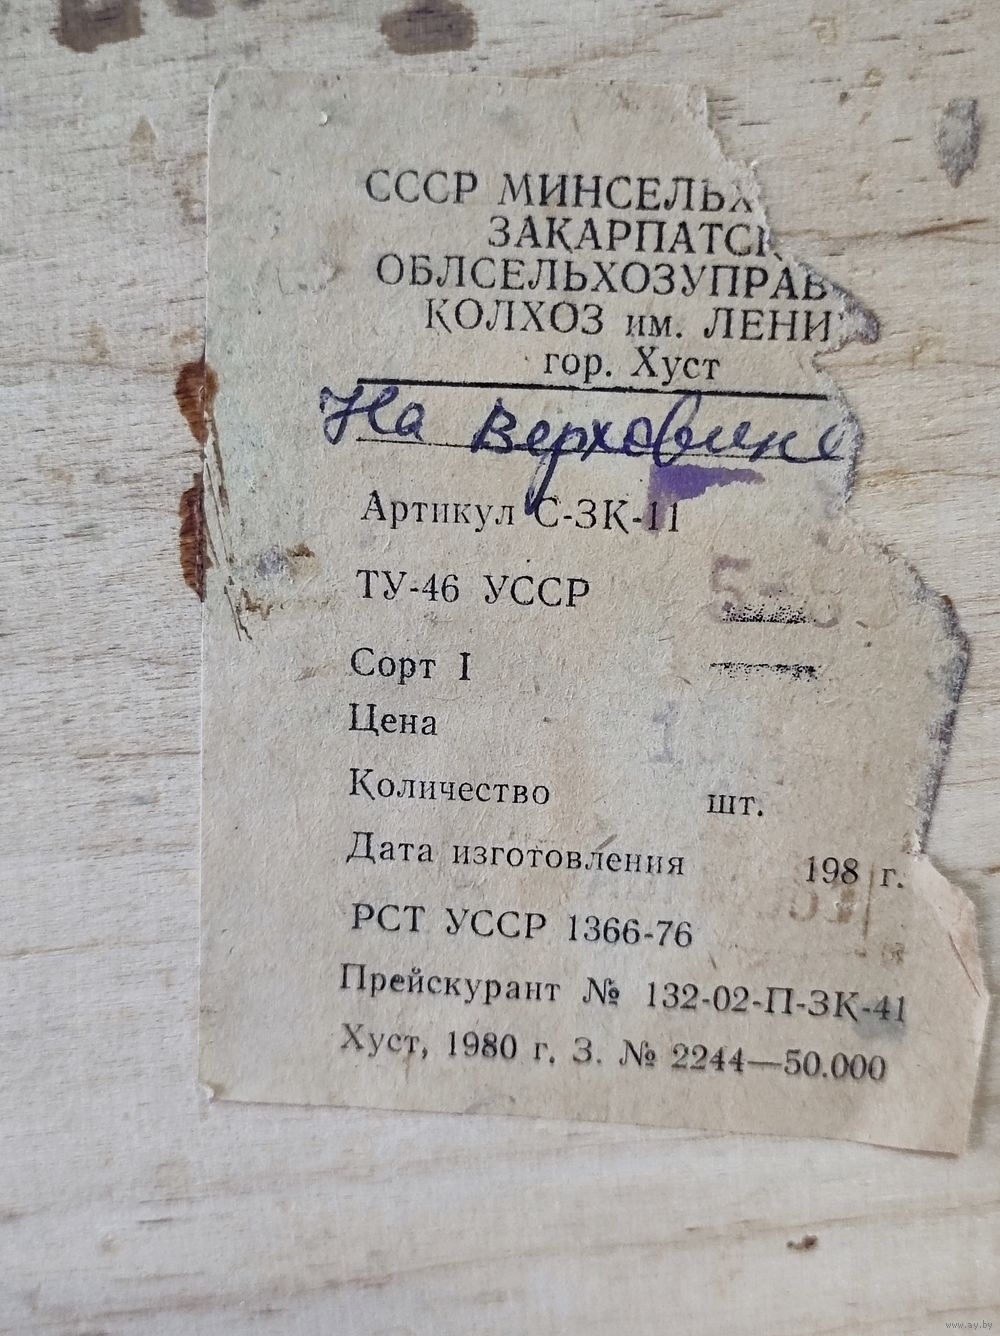 СССР МИНСЕЛЬХ
ЗАКАРПАТСК
ОБЛСЕЛЬХОЗУПРАВ
КОЛХОЗ им. ЛЕНИ
гор. Хуст
На Верховине
Артикул С-ЗК-11
ТУ-46 УССР
Сорт I
Цена
Количество шт.
Дата изготовления 198 г.
РСТ УССР 1366-76
Прейскурант № 132-02-П-ЗК-41
Хуст, 1980 г. З. № 2244—50.000
www.ay.by